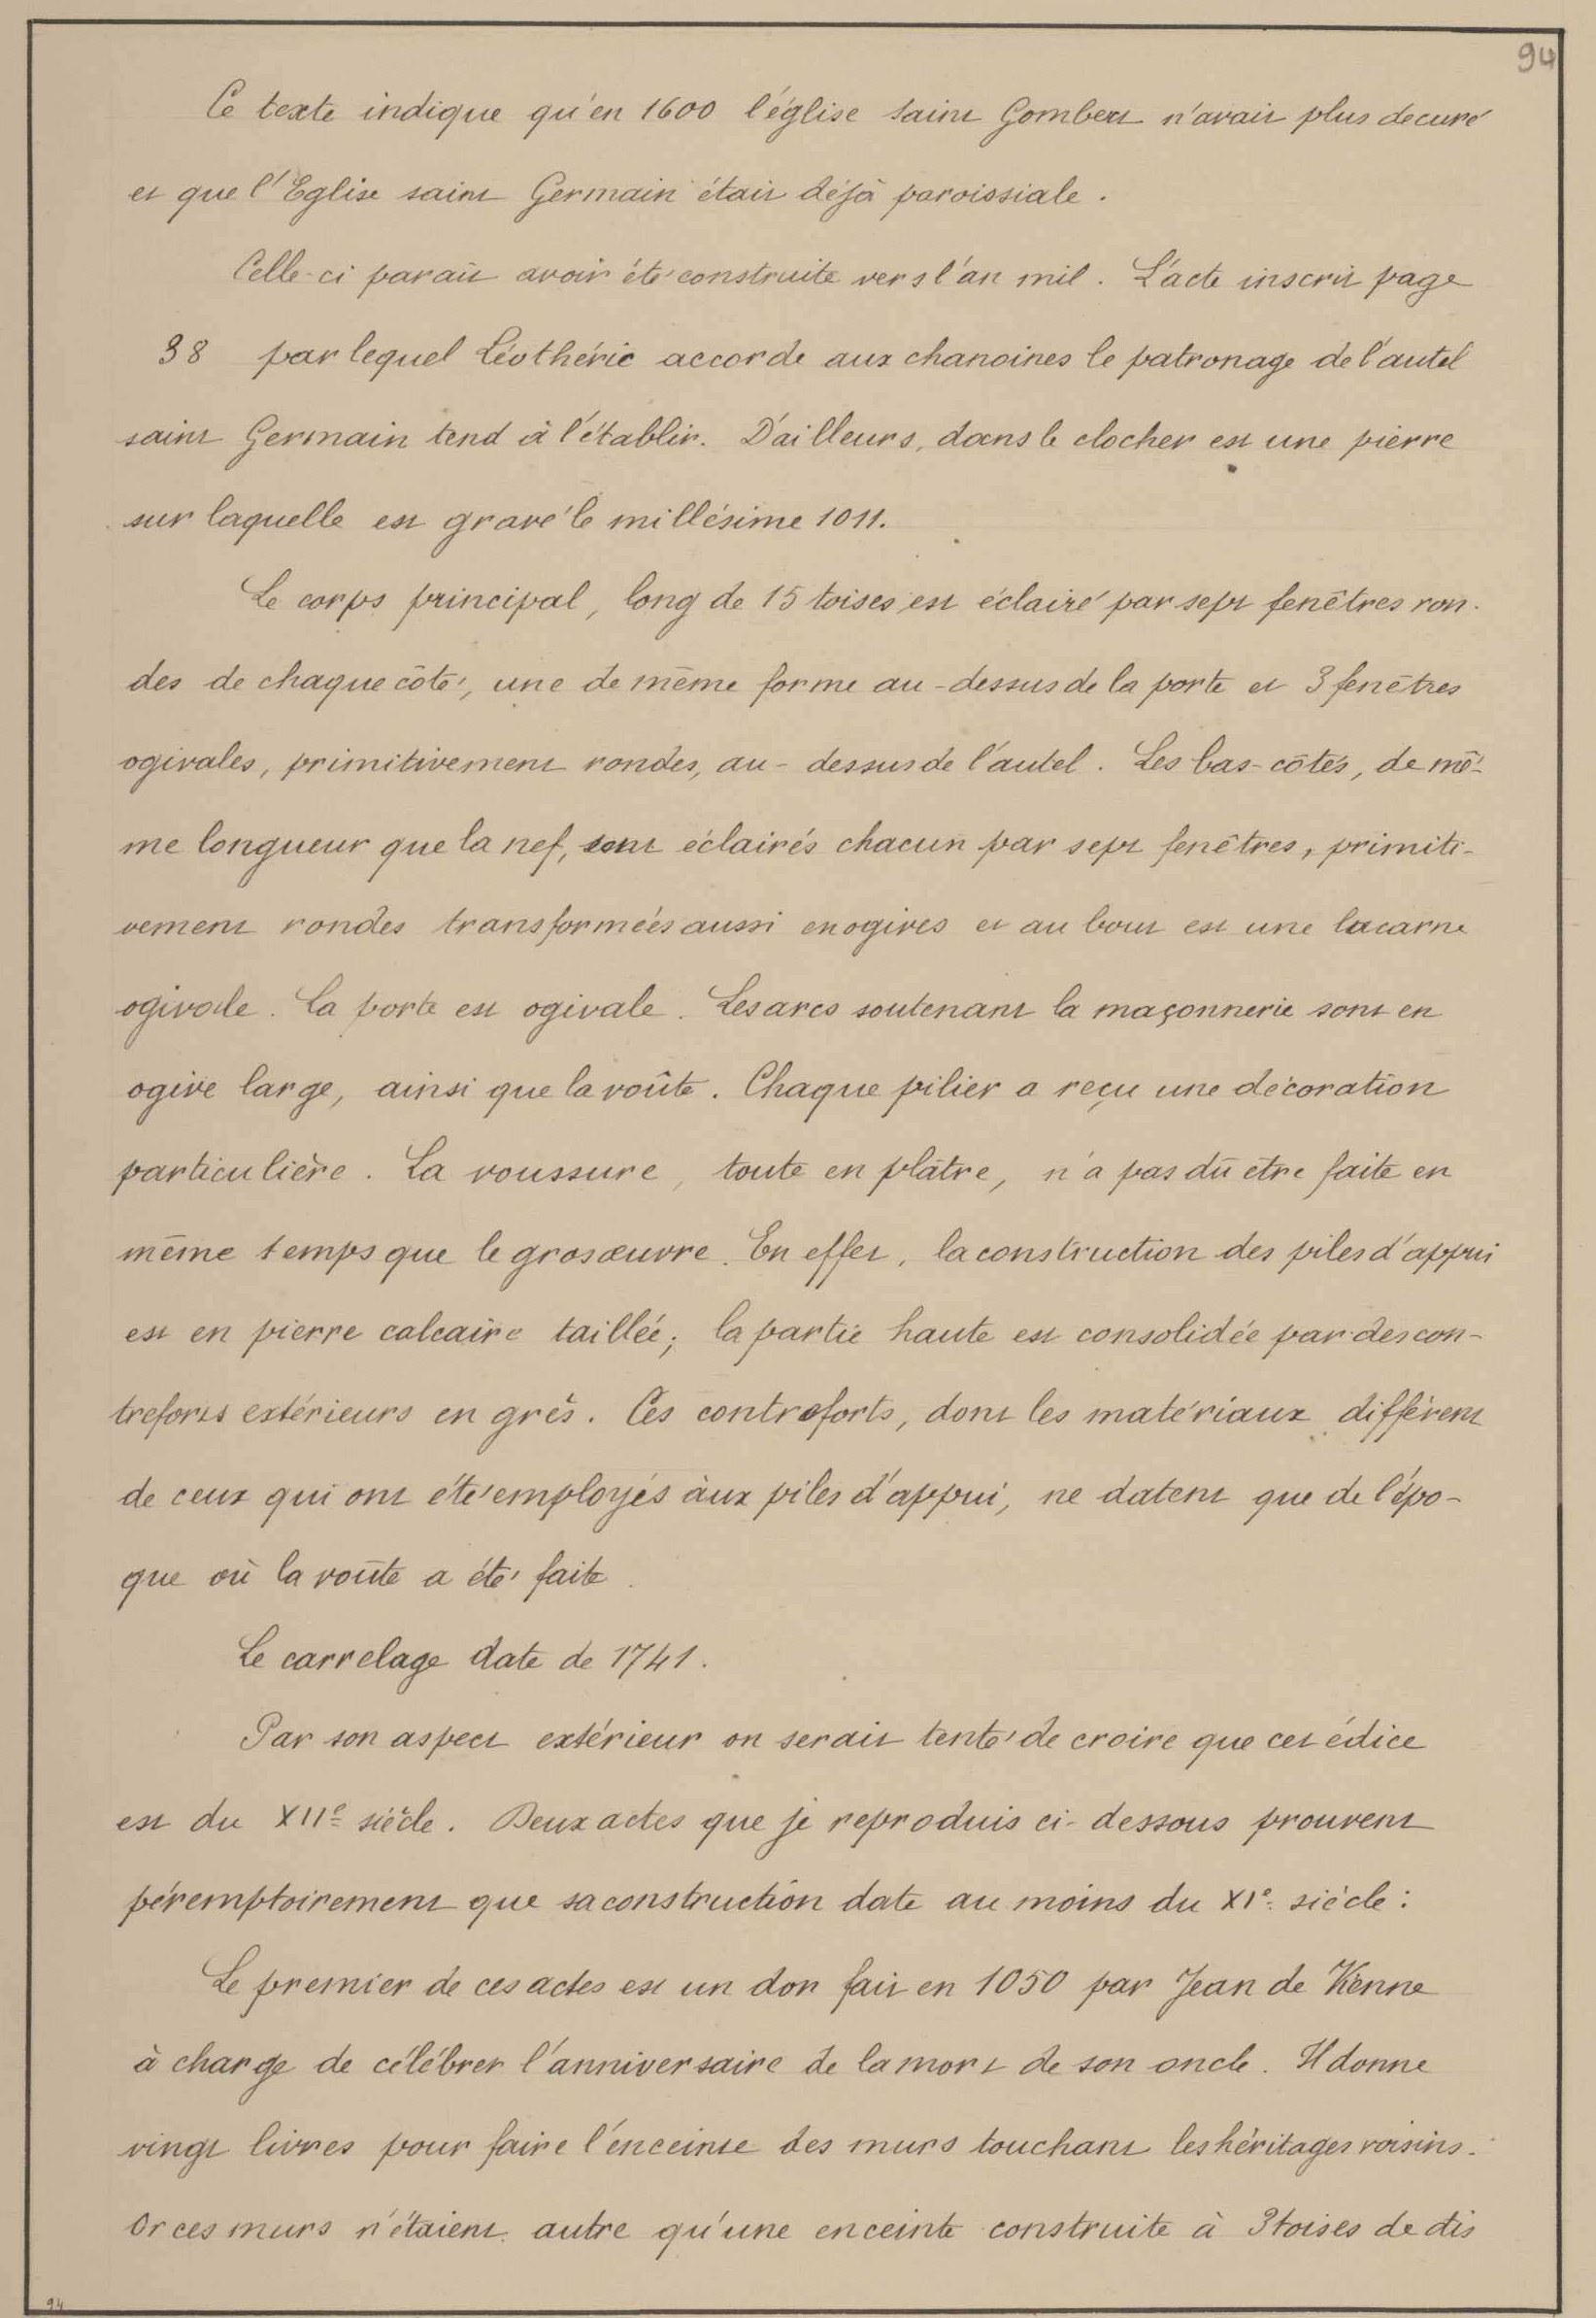 94
Ce texte indique qu'en 1600 l'église saint Gombert n'avait plus de curé
et que l'Eglise saint Germain était déjà paroissiale.
Celle-ci parait avoir été construite vers l'an mil. L'acte inscrit page
38 par lequel Léothéric accorde aux chanoines le patronage de l'autel
saint Germain tend à l'établir. D'ailleurs, dans le clocher est une pierre
sur laquelle est gravé le millésime 1011.
Le corps principal, long de 15 toises est éclairé par sept fenêtres ron-
des de chaque côté, une de même forme au-dessus de la porte et 3 fenêtres
ogivales, primitivement rondes, au-dessus de l'autel. Les bas-côtés, de mê-
me longueur que la nef, sont éclairés chacun par sept fenêtres, primiti-
vement rondes transformées aussi en ogives et au bout est une lucarne
ogivale. La porte est ogivale. Les arcs soutenant la maçonnerie sont en
ogive large, ainsi que la voûte. Chaque pilier a reçu une décoration
particulière. La voussure, toute en plâtre, n'a pas dû être faite en
même temps que le gros œuvre. En effet, la construction des piles d'appui
est en pierre calcaire taillée; la partie haute est consolidée par des con-
treforts extérieurs en grès. Ces contreforts, dont les matériaux diffèrent
de ceux qui ont été employés aux piles d'appui, ne datent que de l'épo-
que où la voûte a été faite.
Le carrelage date de 1741.
Par son aspect extérieur on serait tenté de croire que cet édice
est du XIIe siècle. Deux actes que je reproduis ci-dessous prouvent
péremptoirement que sa construction date au moins du XIe siècle:
Le premier de ces actes est un don fait en 1050 par Jean de Vienne
à charge de célébrer l'anniversaire de la mort de son oncle. Il donne
vingt livres pour faire l'enceinte des murs touchant les héritages voisins.
Or ces murs n'étaient autre qu'une enceinte construite à 3 toises de dis
94